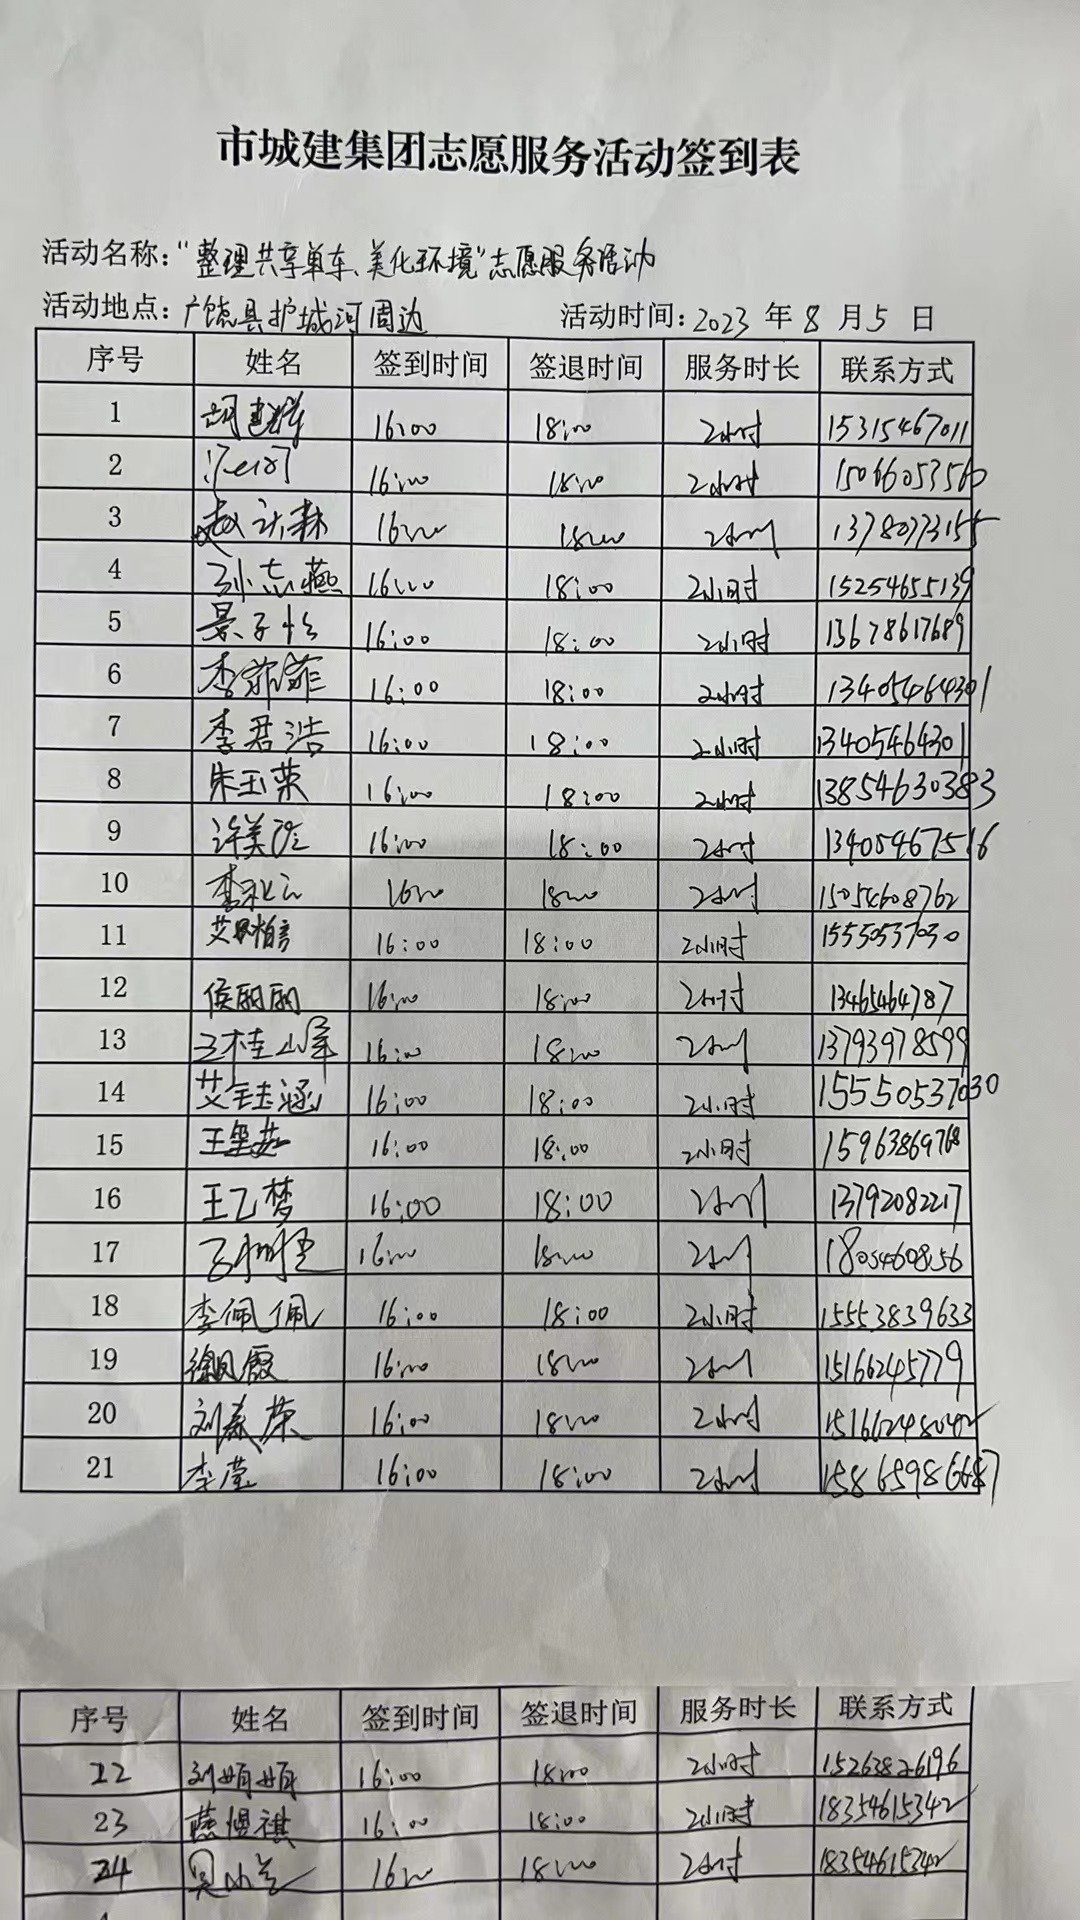 市城建集团志愿服务活动签到表
活动名称：“整理共享单车、美化环境”志愿服务活动
活动地点：广饶县护城河周边 活动时间：2023 年 8 月 5 日
序号 姓名 签到时间 签退时间 服务时长 联系方式
1 胡建祥 16:00 18:00 2小时 15315467011
2 16:00 18:00 2小时 15066053560
3 赵 森 16:00 18:00 2小时 13780773155
4 孙志燕 16:00 18:00 2小时 15254655139
5 晏子怡 16:00 18:00 2小时 13678617689
6 李菲菲 16:00 18:00 2小时 13405464301
7 李君浩 16:00 18:00 2小时 13405464301
8 朱玉荣 16:00 18:00 2小时 13854630383
9 许美玲 16:00 18:00 2小时 13405467516
10 李 16:00 18:00 2小时 15054608762
11 艾 16:00 18:00 2小时 15550537030
12 侯丽丽 16:00 18:00 2小时 13465464787
13 王桂峰 16:00 18:00 2小时 13793978599
14 艾钰涵 16:00 18:00 2小时 15550537030
15 王 16:00 18:00 2小时 15963869768
16 王乙梦 16:00 18:00 2小时 13792082217
17 16:00 18:00 2小时 18054608156
18 李佩佩 16:00 18:00 2小时 15553839633
19 徐凤霞 16:00 18:00 2小时 15166245779
20 刘春荣 16:00 18:00 2小时 15166248042
21 李莹 16:00 18:00 2小时 15865986687
序号 姓名 签到时间 签退时间 服务时长 联系方式
22 刘娟娟 16:00 18:00 2小时 15263826196
23 燕煜祺 16:00 18:00 2小时 18354615342
24 吴小兰 16:00 18:00 2小时 18354615342